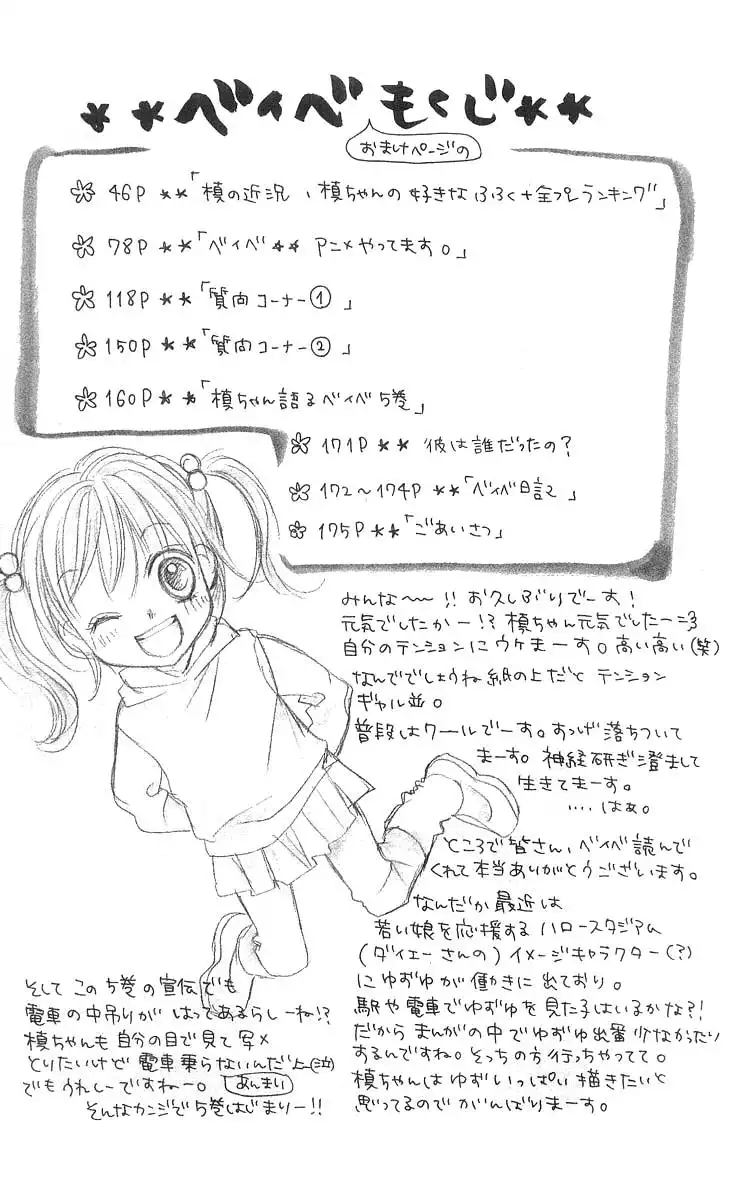 **ベイベもくじ**
おまけページの
46P **「槙の近況、槙ちゃんの好きなふく+全プレランキング」
78P **「ベイベ** アニメやってます。」
118P **「質問コーナー①」
150P **「質問コーナー②」
160P **「槙ちゃん語るベイベ5巻」
171P ** 彼は誰だったの?
172～174P **「ベイベ日記」
175P **「ごあいさつ」
みんな～～!! お久しぶりでーす!
元気でしたかー!? 槙ちゃん元気でしたー=3
自分のテンションにウケまーす。高い高い(笑)
なんででしょうね紙の上だと テンション
ギャル並。
普段はクールでーす。すっげ落ちついて
まーす。神経研ぎ澄まして
生きてまーす。
····はぁ。
ところで皆さん、ベイベ読んで
くれて本当ありがとうございます。
なんだか最近は
若い娘を応援する ハロースタジアム
(ダイエーさんの)イメージキャラクター(?)
にゆずゆが働きに出ており。
駅や電車でゆずゆを見た子はいるかな?!
だから まんがの中でゆずゆ出番少なかったり
するんですね。そっちの方行っちゃってて。
槙ちゃんはゆずいっぱい描きたいと
思ってるのでがんばりまーす。
そして この5巻の宣伝でも
電車の中吊りが はってあるらしーね!?
槙ちゃんも自分の目で見て写メ
とりたいけど 電車乗らないんだよー(泣)
あんまり
でもうれしーですねー。
そんなカンジで5巻はじまりー!!